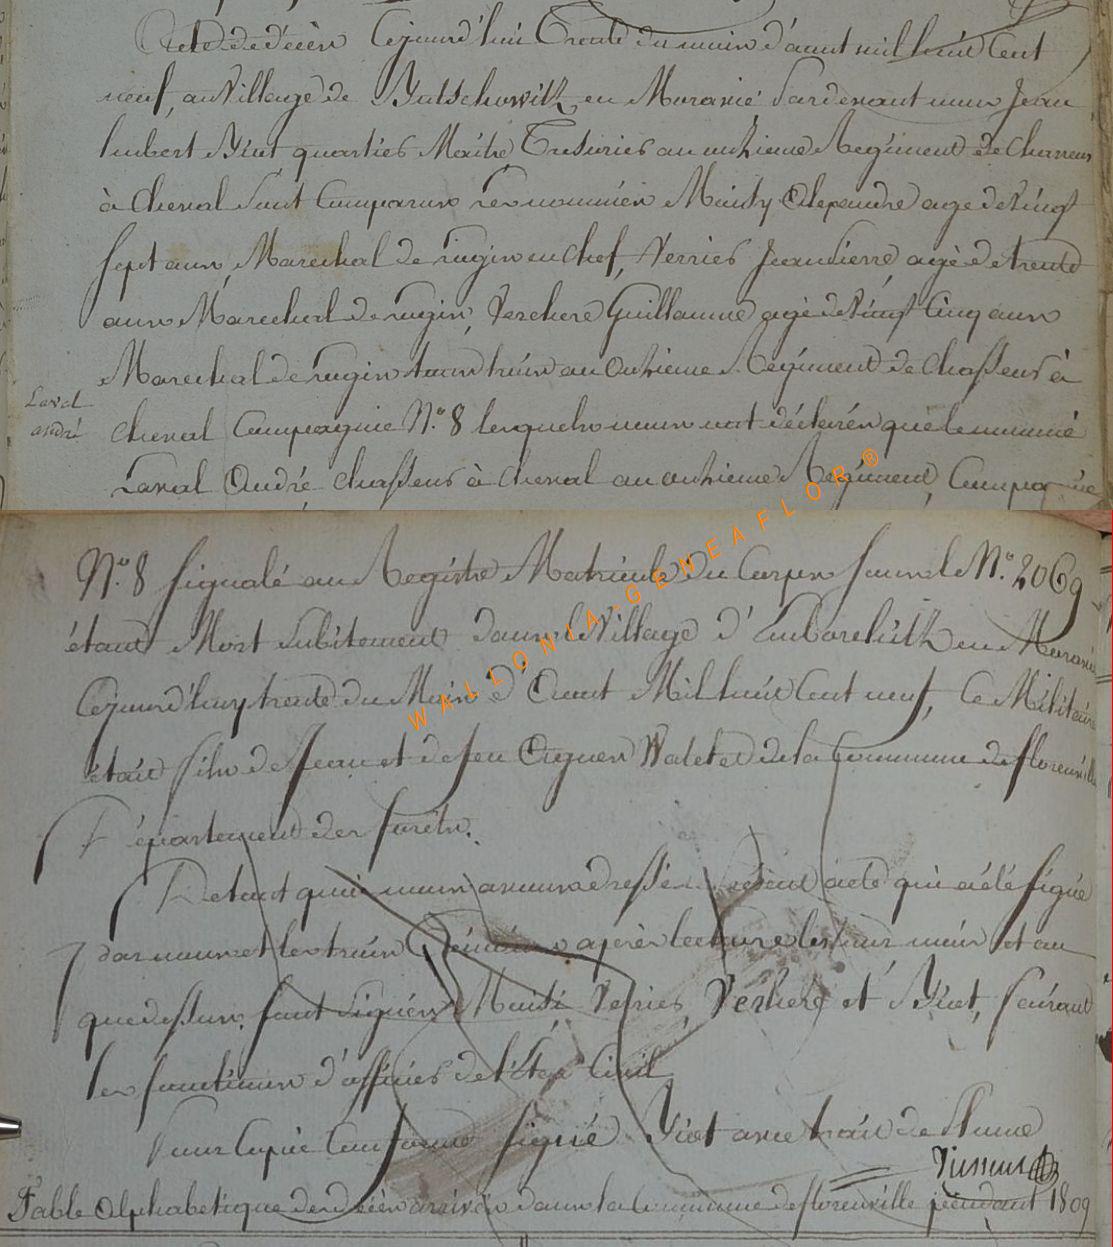 Acte de décèn Cejourd'hui Trente du moin d'aout mil huit Cent
neuf, au Village de Butschowitz en Moravie Pardevant nous Jean
hubert Biot quartier Maitre Trésorier au onzieme Regiment de Chasseurs
à Cheval Sont Comparun les nommén Maisy Alexandre agé de Vingt
sept ans, Marechal de Logis en chef, Verrier Jean Pierre agé de trente
ans Marechal de Logis, Verchere Guillaume agé de Vingt Cinq ans
Marechal de Logis tous trois au Onzieme Regiment de Chasseurs à
Laval
André
Cheval Compagnie N.º 8 lesquels nous ont déclarés que le nommé
Laval André Chasseur à Cheval au onzieme Regiment, Compagnie
N.º 8 signalé au Registre Matricule du Corps sous le N.º 2069
étant Mort Subitement dans le Village d' en Moravie
Cejourd'huy trente du Mois d'Aout Mil huit Cent neuf, Ce Militaire
était fils de Jean et de feu Agnes Watelet de la Commune de florenville
Département des forêts.
De tout quoi nous avons dressé le présent acte qui a été signé
par nous et les trois Témoins après lecture les jour mois et an
que dessus. sont signés Maisi Verrier, Verchere et Biot, faisant
les fonctions d'officier de l'Etat Civil
Pour Copie Conforme signé Biot avec trait de Plume
Table Alphabetique des décès arrivés dans la Commune de florenville pendant 1809
WALLONIA-GENEAFLOR®